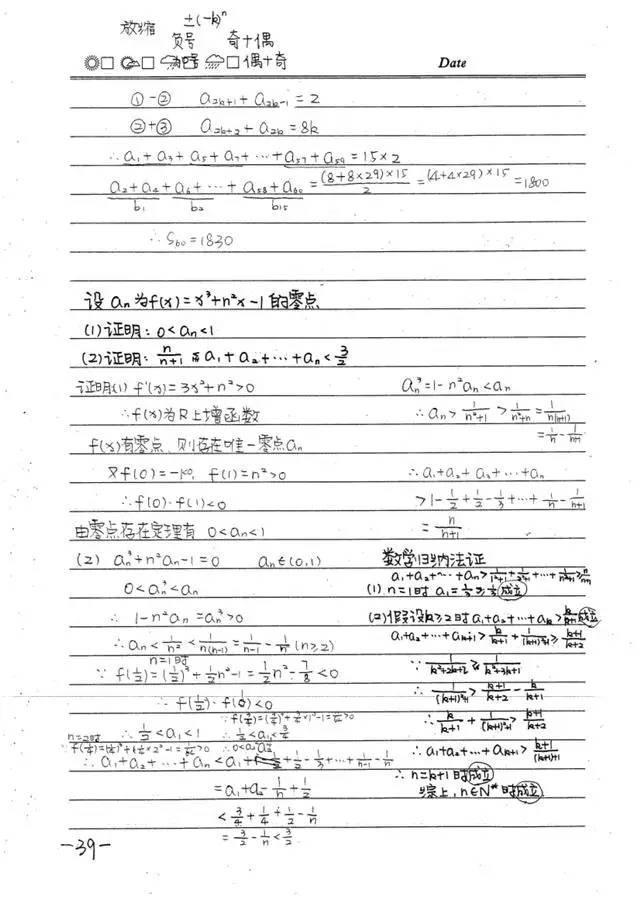 放缩 ±(-k)ⁿ
负号 奇+偶
偶+奇 Date
①-② a₂ₖ₊₁+a₂ₖ₋₁=2
②+③ a₂ₖ₊₂+a₂ₖ=8k
∴a₁+a₃+a₅+a₇+…+a₅₇+a₅₉=15×2
a₂+a₄+a₆+…+a₅₈+a₆₀=(8+8×29)×15/2=(4+4×29)×15=1800
b₁ b₂ b₁₅
∴S₆₀=1830
设aₙ为f(x)=x³+n²x-1的零点
(1)证明:0<aₙ<1
(2)证明:n/(n+1) a₁+a₂+…+aₙ<3/2
证明(1) f'(x)=3x²+n²>0
∴f(x)为R上增函数
f(x)有零点,则存在唯一零点aₙ
又f(0)=-1<0, f(1)=n²>0
∴f(0)·f(1)<0
由零点存在定理有 0<aₙ<1
(2) aₙ³+n²aₙ-1=0 aₙ∈(0,1)
0<aₙ³<aₙ
∴1-n²aₙ=aₙ³>0
∴aₙ<1/n²<1/n(n-1)=1/(n-1)-1/n (n≥2)
n=1时
∵f(1/2)=(1/2)³+1/2n²-1=1/2n²-7/8<0
∴f(1/2)·f(1)<0
∵f(3/4)=(3/4)³+3/4×1²-1=11/64>0
∴1/2<a₁<1 ∴1/2<a₁<3/4
n=2时
∴a₁+a₂+…+aₙ<a₁+ 1/2-1/3+…+1/(n-1)-1/n
=a₁+a₂-1/n+1/2
<3/4+1/4+1/2-1/n
=3/2-1/n<3/2
aₙ³=1-n²aₙ<aₙ
∴aₙ>1/(n²+1)>1/(n²+n)=1/n(n+1)
=1/n-1/(n+1)
∴a₁+a₂+a₃+…+aₙ
>1-1/2+1/2-1/3+…+1/n-1/(n+1)
=n/(n+1)
数学归纳法证
a₁+a₂+…+aₙ>1/(1²+1)+1/(2²+1)+…+1/(n²+1)≥n/(n+1)
(1) n=1时 a₁=1/2≥1/2成立
(2)假设k≥2时a₁+a₂+…+aₖ>k/(k+1)成立
a₁+a₂+…+aₖ₊₁>k/(k+1)+1/((k+1)²+1)≥(k+1)/(k+2)
∵1/(k²+2k+2)≥1/(k²+3k+1)
∴1/((k+1)²+1)>(k+1)/(k+2)-k/(k+1)
∴k/(k+1)+1/((k+1)²+1)>(k+1)/(k+2)
∴a₁+a₂+…+aₖ₊₁>(k+1)/((k+1)+1)
∴n=k+1时成立
综上,n∈N*时成立
-39-